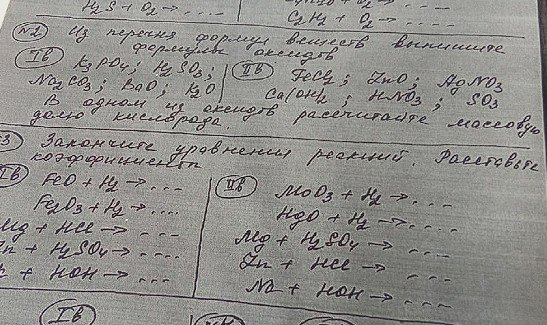 H₂S + O₂ → ....
C₂H₂ + O₂ → ....
№2 Из перечня формул веществ выпишите
формулы оксидов
Iв K₃PO₄; H₂SO₃;
Na₂CO₃; BaO; K₂O
IIв FeCl₂; ZnO; AgNO₃
Ca(OH)₂; HNO₃; SO₃
В одном из оксидов рассчитайте массовую
долю кислорода.
3 Закончите уравнения реакций. Расставьте
коэффициенты
Iв FeO + H₂ → ...
Fe₂O₃ + H₂ → ....
Mg + HCl → ...
Zn + H₂SO₄ → ....
+ HOH → ...
IIв MoO₃ + H₂ → ...
HgO + H₂ → ....
Mg + H₂SO₄ → ...
Zn + HCl → ...
Na + HOH → ...
Iв